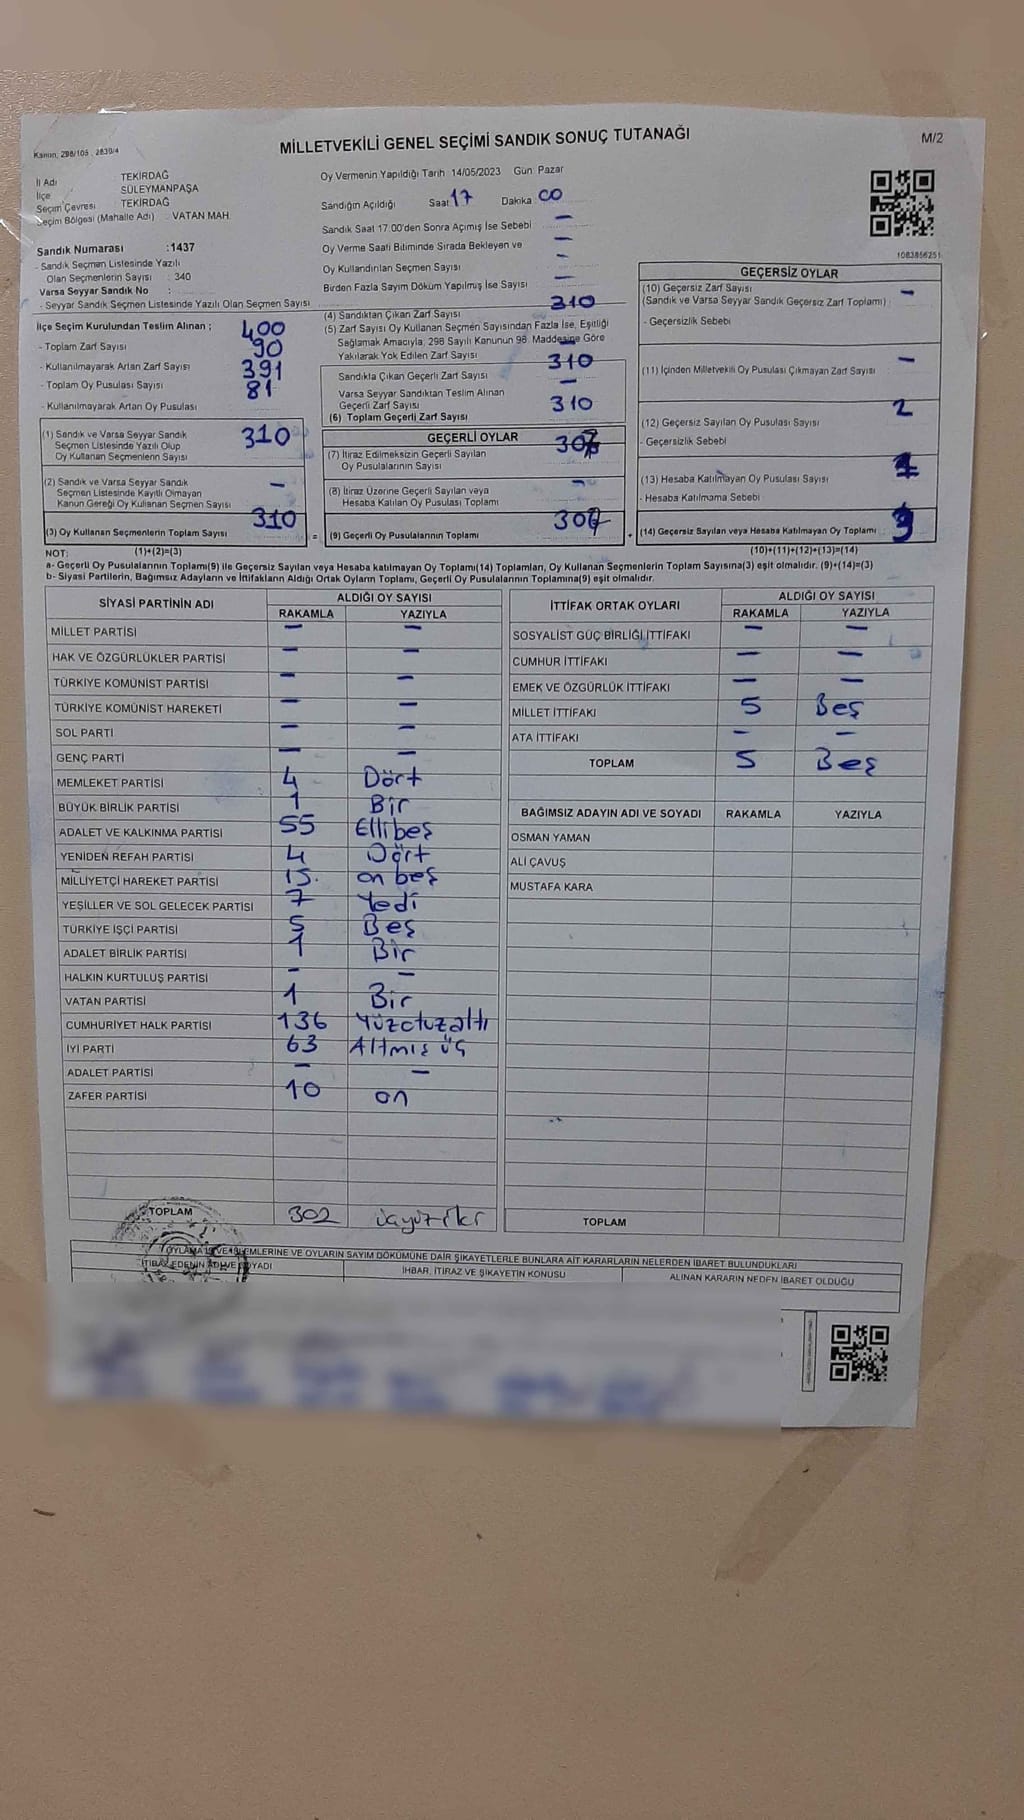 Kanun; 298/105 , 2839/4
MİLLETVEKİLİ GENEL SEÇİMİ SANDIK SONUÇ TUTANAĞI
M/2
İl Adı : TEKİRDAĞ
İlçe : SÜLEYMANPAŞA
Seçim Çevresi : TEKİRDAĞ
Seçim Bölgesi (Mahalle Adı) : VATAN MAH.
Sandık Numarası :1437
- Sandık Seçmen Listesinde Yazılı
Olan Seçmenlerin Sayısı : 340
Varsa Seyyar Sandık No :
- Seyyar Sandık Seçmen Listesinde Yazılı Olan Seçmen Sayısı :
Oy Vermenin Yapıldığı Tarih 14/05/2023 Gün: Pazar
Sandığın Açıldığı Saat 17 Dakika 00
Sandık Saat 17.00'den Sonra Açımış İse Sebebi —
Oy Verme Saati Bitiminde Sırada Bekleyen ve —
Oy Kullandırılan Seçmen Sayısı —
Birden Fazla Sayım Döküm Yapılmış İse Sayısı —
1083856251
İlçe Seçim Kurulundan Teslim Alınan ; 400
- Toplam Zarf Sayısı 90
- Kullanılmayarak Artan Zarf Sayısı 391
- Toplam Oy Pusulası Sayısı 81
- Kullanılmayarak Artan Oy Pusulası
(1) Sandık ve Varsa Seyyar Sandık 310
Seçmen Listesinde Yazılı Olup
Oy Kullanan Seçmenlerin Sayısı
(2) Sandık ve Varsa Seyyar Sandık —
Seçmen Listesinde Kayıtlı Olmayan
Kanun Gereği Oy Kullanan Seçmen Sayısı
(3) Oy Kullanan Seçmenlerin Toplam Sayısı 310 =
(4) Sandıktan Çıkan Zarf Sayısı 310
(5) Zarf Sayısı Oy Kullanan Seçmen Sayısından Fazla İse, Eşitliği
Sağlamak Amacıyla, 298 Sayılı Kanunun 98. Maddesine Göre
Yakılarak Yok Edilen Zarf Sayısı —
Sandıkta Çıkan Geçerli Zarf Sayısı 310
Varsa Seyyar Sandıktan Teslim Alınan
Geçerli Zarf Sayısı —
(6) Toplam Geçerli Zarf Sayısı 310
GEÇERLİ OYLAR
(7) İtiraz Edilmeksizin Geçerli Sayılan
Oy Pusulalarının Sayısı 307
(8) İtiraz Üzerine Geçerli Sayılan veya
Hesaba Katılan Oy Pusulası Toplamı —
(9) Geçerli Oy Pusulalarının Toplamı 307 +
GEÇERSİZ OYLAR
(10) Geçersiz Zarf Sayısı —
(Sandık ve Varsa Seyyar Sandık Geçersiz Zarf Toplamı) :
- Geçersizlik Sebebi :
(11) İçinden Milletvekili Oy Pusulası Çıkmayan Zarf Sayısı : —
(12) Geçersiz Sayılan Oy Pusulası Sayısı : 2
- Geçersizlik Sebebi
(13) Hesaba Katılmayan Oy Pusulası Sayısı : 1
- Hesaba Katılmama Sebebi :
(14) Geçersiz Sayılan veya Hesaba Katılmayan Oy Toplamı : 3
NOT: (1)+(2)=(3) (10)+(11)+(12)+(13)=(14)
a- Geçerli Oy Pusulalarının Toplamı(9) ile Geçersiz Sayılan veya Hesaba katılmayan Oy Toplamı(14) Toplamları, Oy Kullanan Seçmenlerin Toplam Sayısına(3) eşit olmalıdır. (9)+(14)=(3)
b- Siyasi Partilerin, Bağımsız Adayların ve İttifakların Aldığı Ortak Oyların Toplamı, Geçerli Oy Pusulalarının Toplamına(9) eşit olmalıdır.
SİYASİ PARTİNİN ADI ALDIĞI OY SAYISI
RAKAMLA YAZIYLA
MİLLET PARTİSİ — —
HAK VE ÖZGÜRLÜKLER PARTİSİ — —
TÜRKİYE KOMÜNİST PARTİSİ — —
TÜRKİYE KOMÜNİST HAREKETİ — —
SOL PARTİ — —
GENÇ PARTİ — —
MEMLEKET PARTİSİ 4 Dört
BÜYÜK BİRLİK PARTİSİ 1 Bir
ADALET VE KALKINMA PARTİSİ 55 Ellibeş
YENİDEN REFAH PARTİSİ 4 Dört
MİLLİYETÇİ HAREKET PARTİSİ 15. on beş
YEŞİLLER VE SOL GELECEK PARTİSİ 7 Yedi
TÜRKİYE İŞÇİ PARTİSİ 5 Beş
ADALET BİRLİK PARTİSİ 1 Bir
HALKIN KURTULUŞ PARTİSİ — —
VATAN PARTİSİ 1 Bir
CUMHURİYET HALK PARTİSİ 136 Yüzotuzaltı
İYİ PARTİ 63 Altmış üç
ADALET PARTİSİ — —
ZAFER PARTİSİ 10 on
TOPLAM 302 üçyüz iki
İTTİFAK ORTAK OYLARI ALDIĞI OY SAYISI
RAKAMLA YAZIYLA
SOSYALİST GÜÇ BİRLİĞİ İTTİFAKI — —
CUMHUR İTTİFAKI — —
EMEK VE ÖZGÜRLÜK İTTİFAKI — —
MİLLET İTTİFAKI 5 Beş
ATA İTTİFAKI — —
TOPLAM 5 Beş
BAĞIMSIZ ADAYIN ADI VE SOYADI RAKAMLA YAZIYLA
OSMAN YAMAN
ALİ ÇAVUŞ
MUSTAFA KARA
TOPLAM
OYLAMA İŞ VE İŞLEMLERİNE VE OYLARIN SAYIM DÖKÜMÜNE DAİR ŞİKAYETLERLE BUNLARA AİT KARARLARIN NELERDEN İBARET BULUNDUKLARI
İTİRAZ EDENİN ADI VE SOYADI İHBAR, İTİRAZ VE ŞİKAYETİN KONUSU ALINAN KARARIN NEDEN İBARET OLDUĞU